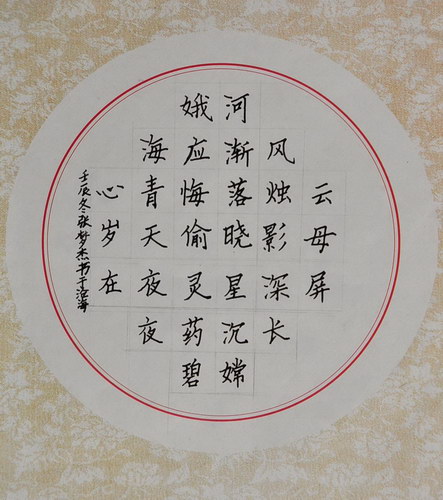 云母屏
风烛影深长
河渐落晓星沉嫦
娥应悔偷灵药碧
海青天夜夜
心岁在
壬辰冬张梦杰书于沧海